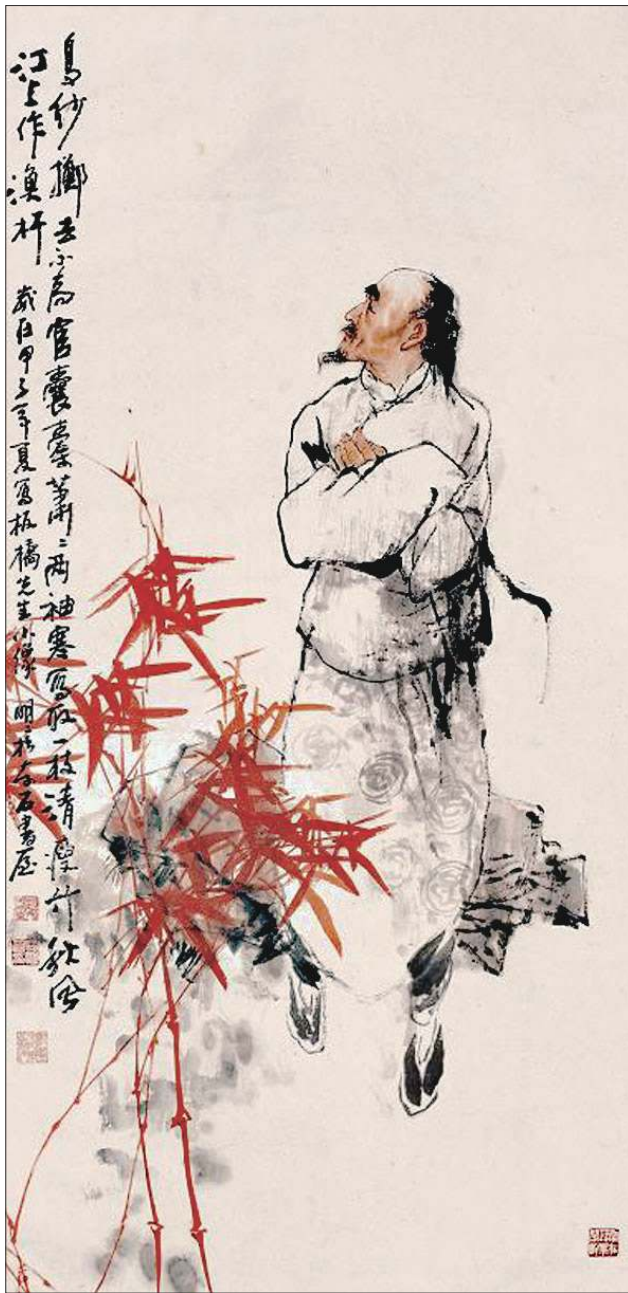 烏紗擲去不為官囊橐蕭〻两袖寒寫取一枝清瘦竹秋風
江上作漁杆 歲在甲子年夏寫板橋先生小像 明 石書屋